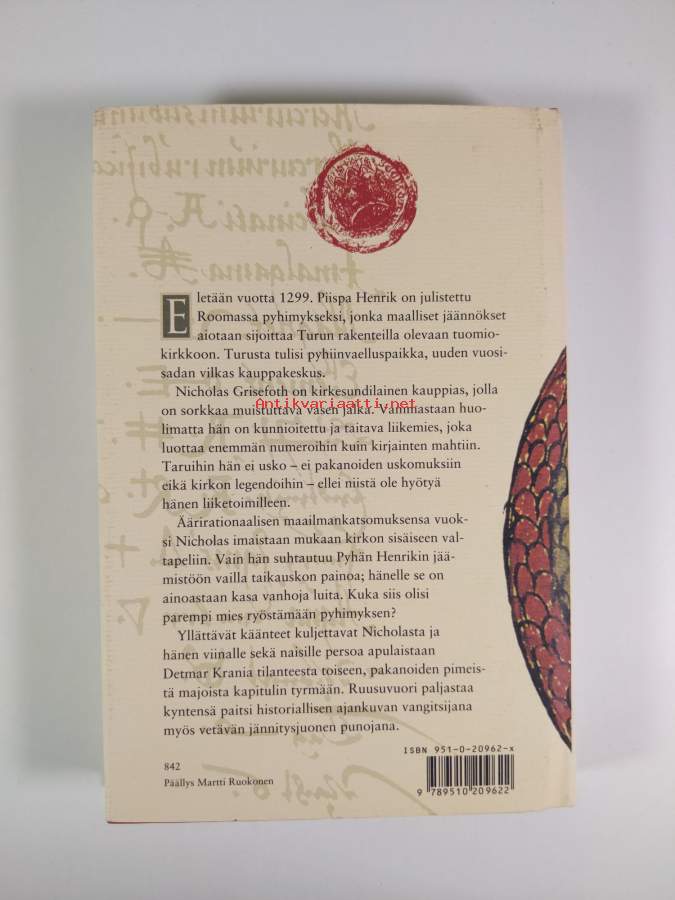 Eletään vuotta 1299. Piispa Henrik on julistettu
Roomassa pyhimykseksi, jonka maalliset jäännökset
aiotaan sijoittaa Turun rakenteilla olevaan tuomio-
kirkkoon. Turusta tulisi pyhiinvaelluspaikka, uuden vuosi-
sadan vilkas kauppakeskus.
Nicholas Grisefoth on kirkesundilainen kauppias, jolla
Antikvariaatti.net
on sorkkaa muistuttava vasen jalka. Vammastaan huo-
limatta hän on kunnioitettu ja taitava liikemies, joka
luottaa enemmän numeroihin kuin kirjainten mahtiin.
Taruihin hän ei usko – ei pakanoiden uskomuksiin
eikä kirkon legendoihin – ellei niistä ole hyötyä
hänen liiketoimilleen.
Äärirationaalisen maailmankatsomuksensa vuok-
si Nicholas imaistaan mukaan kirkon sisäiseen val-
tapeliin. Vain hän suhtautuu Pyhän Henrikin jää-
mistöön vailla taikauskon painoa; hänelle se on
ainoastaan kasa vanhoja luita. Kuka siis olisi
parempi mies ryöstämään pyhimyksen?
Yllättävät käänteet kuljettavat Nicholasta ja
hänen viinalle sekä naisille persoa apulaistaan
Detmar Krania tilanteesta toiseen, pakanoiden pimeis-
tä majoista kapitulin tyrmään. Ruusuvuori paljastaa
kyntensä paitsi historiallisen ajankuvan vangitsijana
myös vetävän jännitysjuonen punojana.
ISBN 951-0-20962-x
842
Päällys Martti Ruokonen
9 789510 209622